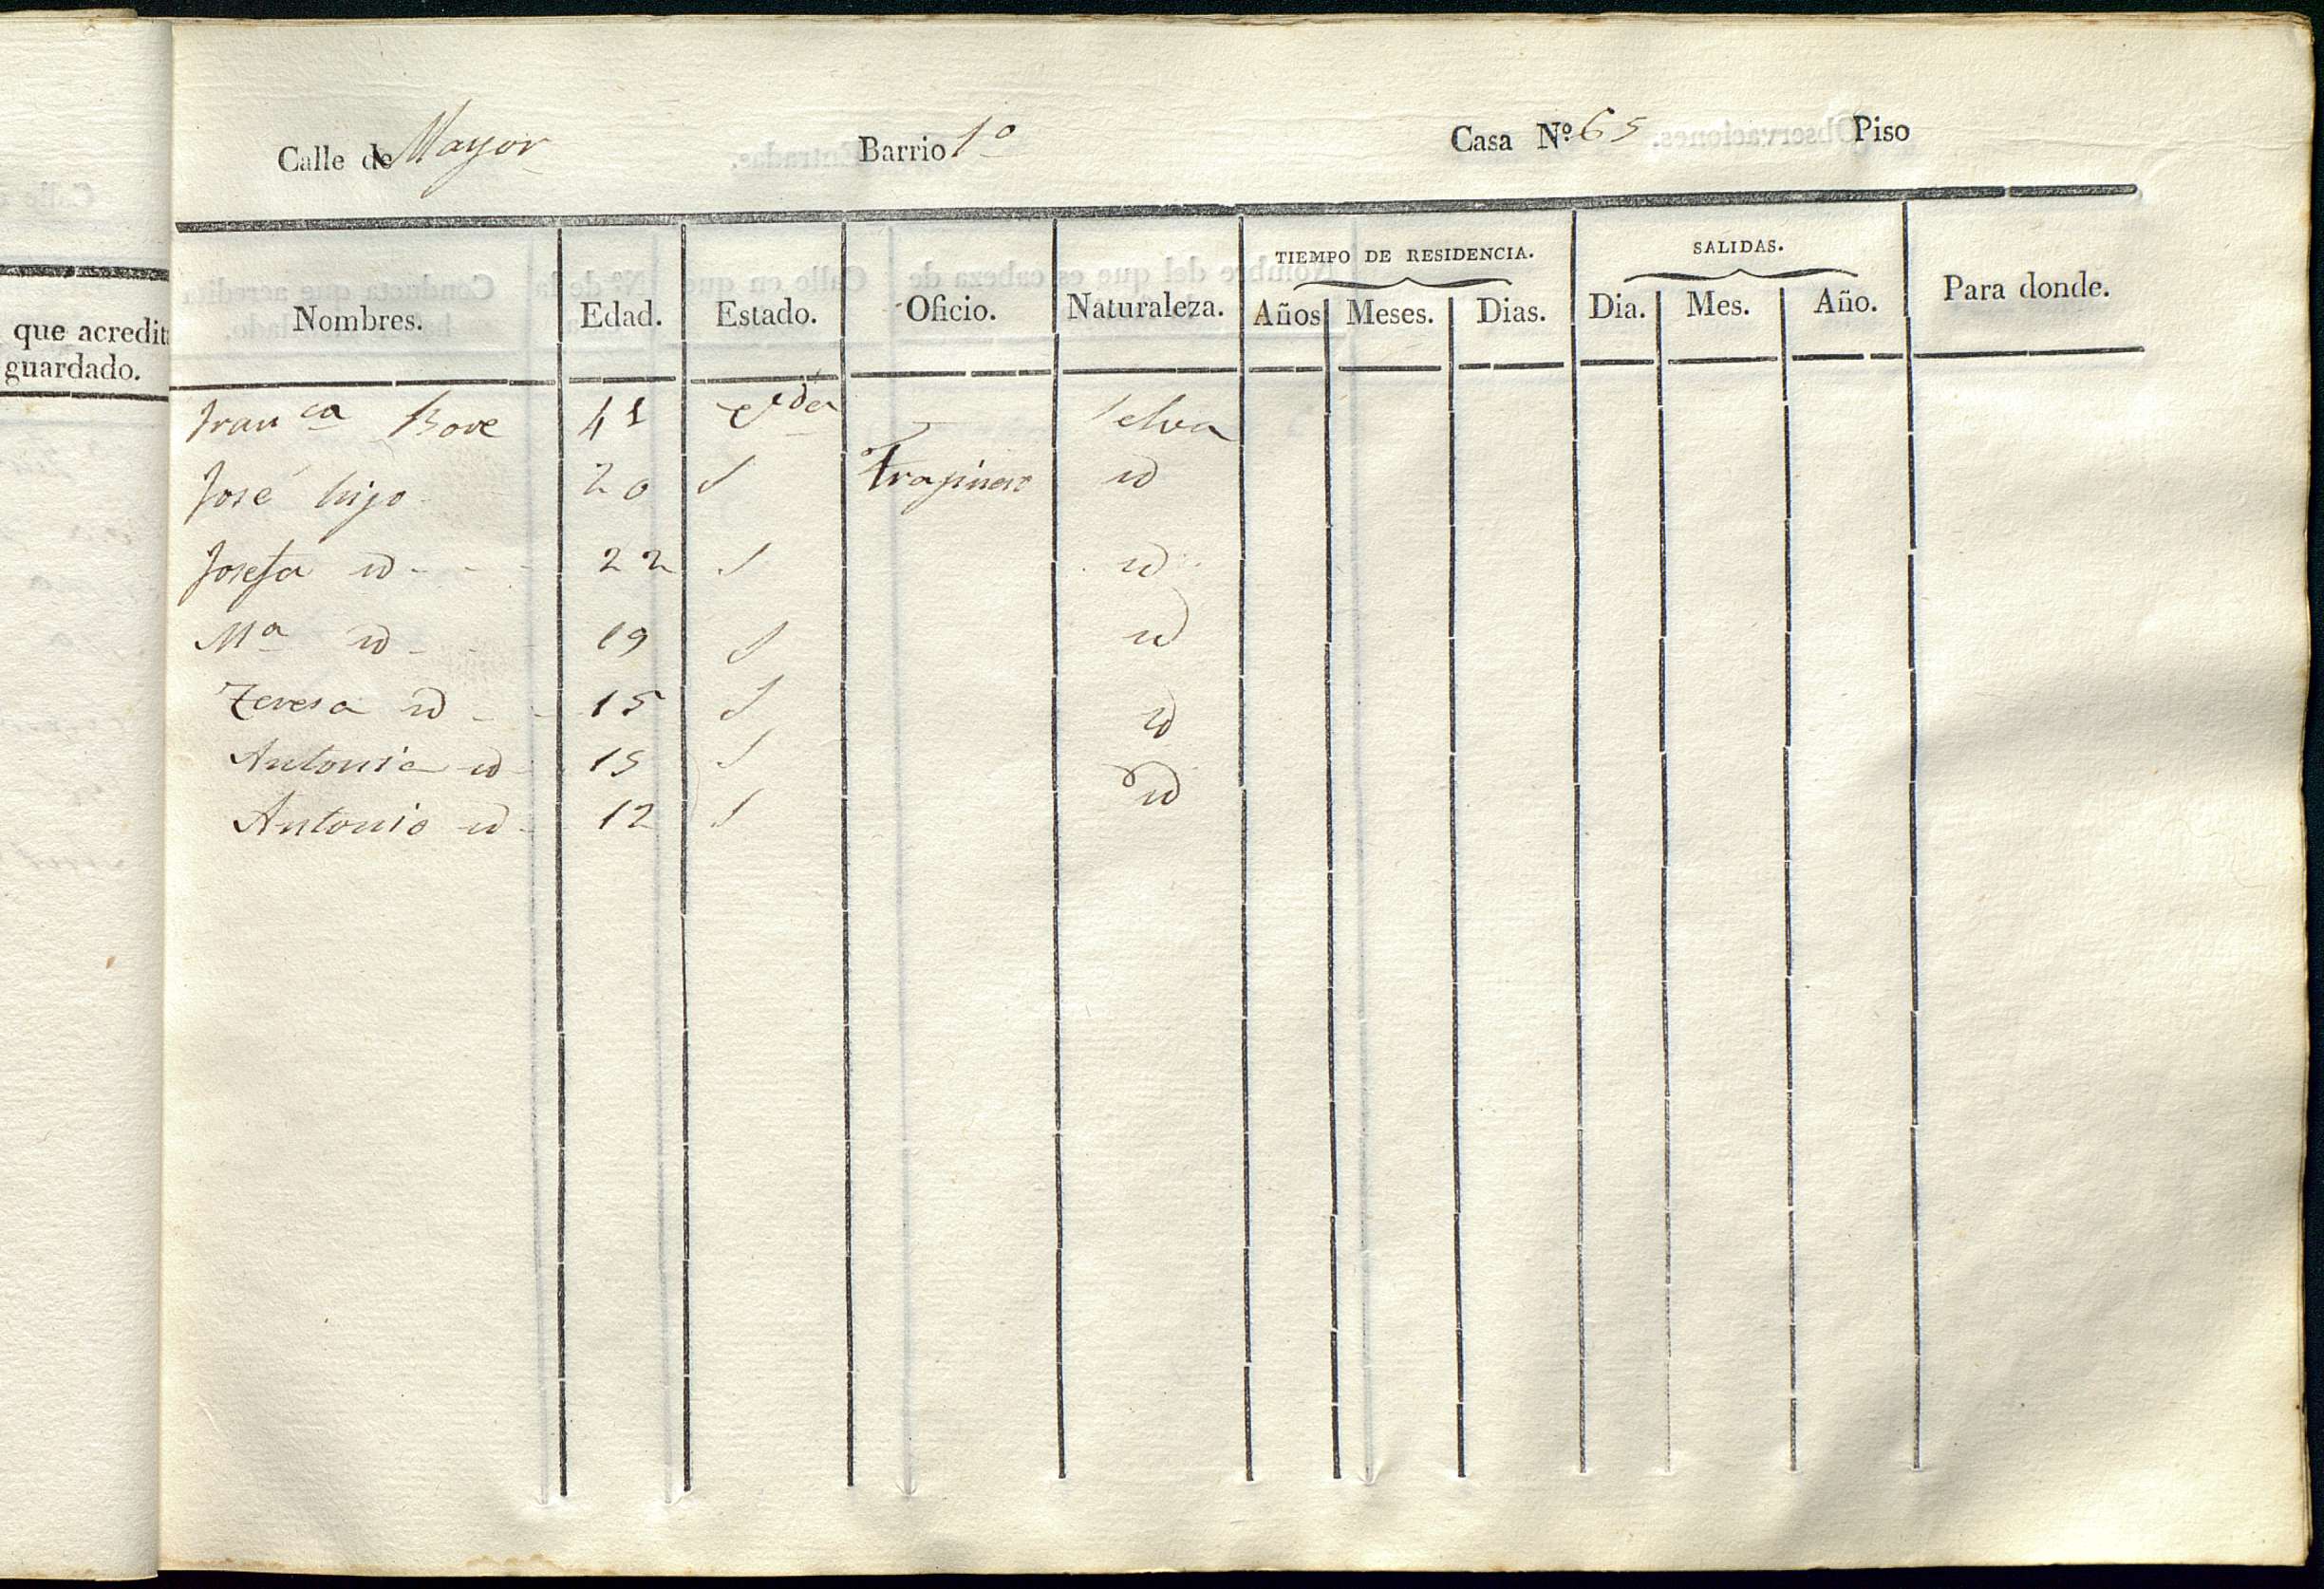 Calle de Mayor Barrio 1º Casa Nº 65 Piso
que acredit
guardado.
TIEMPO DE RESIDENCIA. SALIDAS.
Nombres. Edad. Estado. Oficio. Naturaleza. Años Meses. Dias. Dia. Mes. Año. Para donde.
Franca Bove 41 Vda Selva
José hijo 20 S Traginero id
Josefa id 22 S id
Ma id 19 S id
Teresa id 15 S id
Antonia id 15 S id
Antonio id 12 S